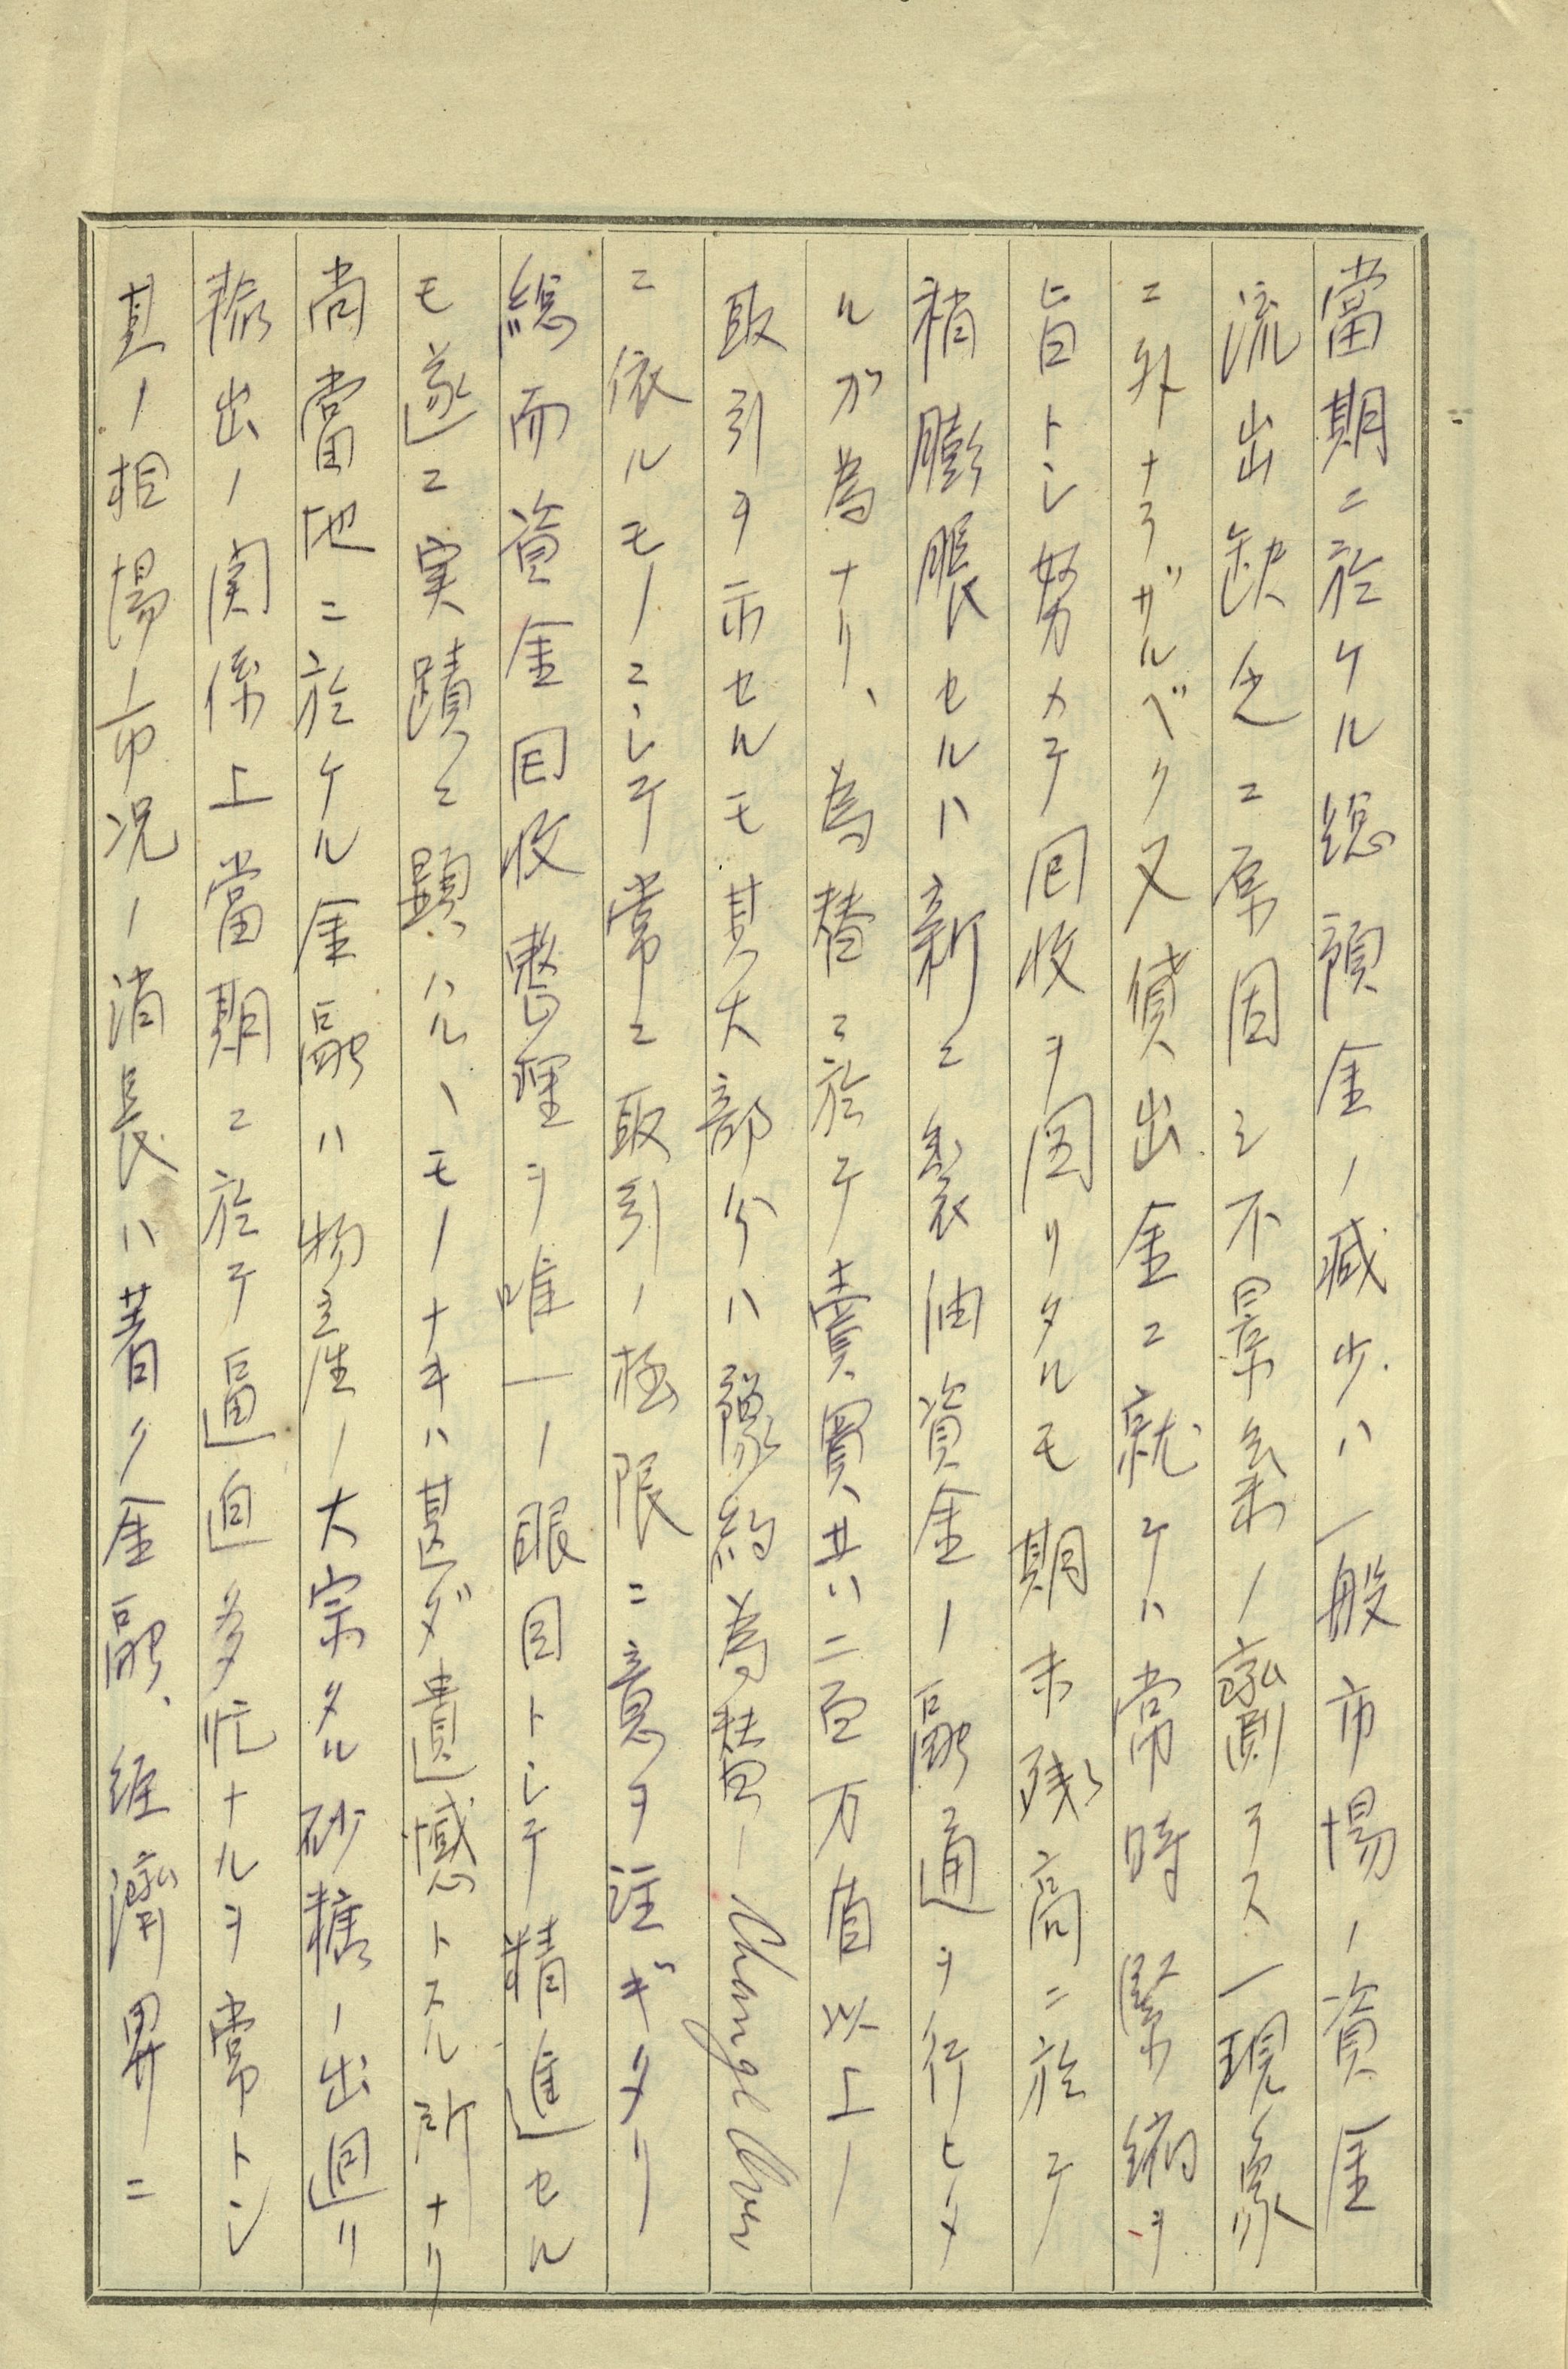 當期ニ於ケル総預金ノ減少ハ一般市場ノ資金
流出缺乏ニ原因シ不景氣ノ齎ラス一現象
ニ外ナラザルベク又貸出金ニ就テハ常時緊縮ヲ
旨トシ努メテ回收ヲ図リタルモ期末残高ニ於テ
稍膨脹セルハ新ニ製油資金ノ融通ヲ行ヒタ
ルガ為ナリ、為替ニ於テ賣買共ハ二百万盾以上ノ
取引ヲ示セルモ其大部分ハ豫約為替ノ Change Over
ニ依ルモノニシテ常ニ取引ノ極限ニ意ヲ注ギタリ
総而資金回收整理ヲ唯一ノ眼目トシテ精進セル
モ遂ニ実蹟ニ顕ハルヽモノナキハ甚ダ遺憾トスル所ナリ
尚當地ニ於ケル金融ハ物産ノ大宗タル砂糖ノ出迴リ
輸出ノ関係上當期ニ於テ逼迫多忙ナルヲ常トシ
其ノ相場市況ノ消長ハ著ク金融、経濟界ニ